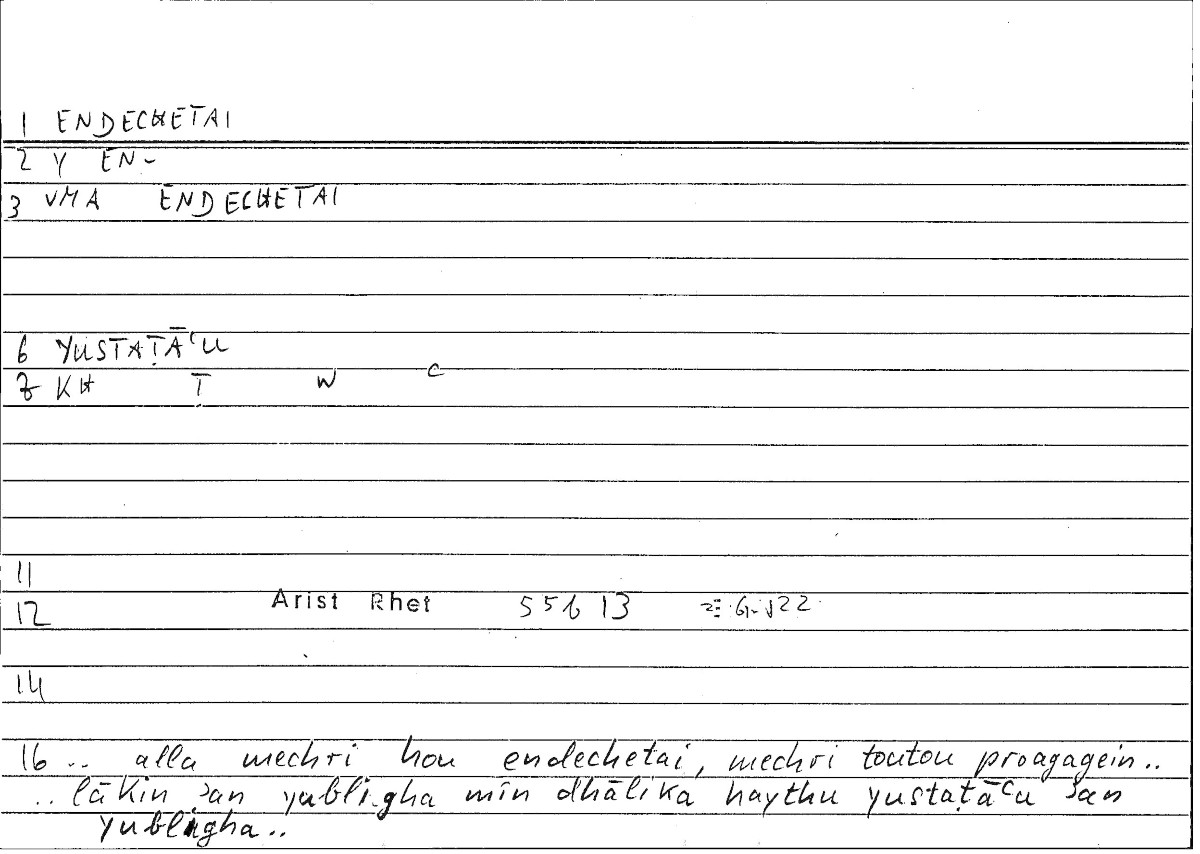 1 ENDECHETAI
2 Y EN-
3 VMA ENDECHETAI
6 YUSTAṬĀʿU
7 KH Ṭ W ʿ
11
12 Arist Rhet 55b 13
14
16 .. alla mechri hou endechetai, mechri toutou proagagein..
.. lākin ʾan yubligha min dhālika haythu yustaṭāʿu ʾan
yubligha..